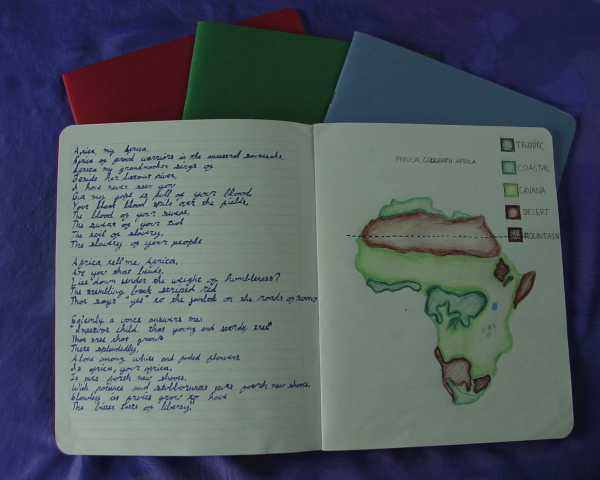 Africa, my Africa,
Africa of proud warriors in the ancestral savannahs,
Africa my grandmother sings of
Beside her distant river,
I have never seen you
But my gaze is full of your blood
Your black blood spilt over the fields,
The blood of your sweat,
The sweat of your toil
The toil of slavery,
The slavery of your people
Africa tell me, Africa,
Are you that
Lies down under the weight of humbleness?
The trembling back striped red
That says "yes" to the on the roads of noon?
Solemnly a voice answers me
child, that young and sturdy tree"
That tree that grows
There splendidly,
Alone among white and faded flowers
Is Africa, your Africa,
It puts forth new shoots,
With patience and stubbornness puts forth new shoots,
Slowly its fruits grow to have
The bitter taste of liberty"
PHYSICAL GEOGRAPHY: AFRICA
TROPIC
COASTAL
SAVANA
DESERT
MOUNTAIN